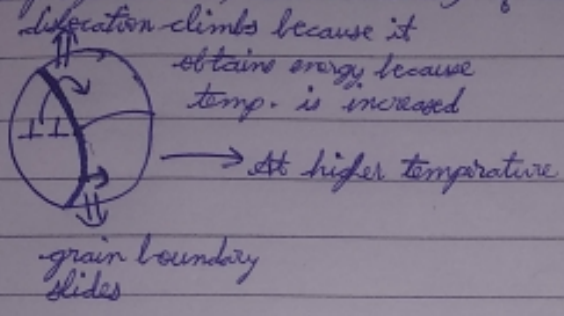 dislocation climbs because it
obtains energy because
temp. is increased
At higher temperature
grain boundary
slides